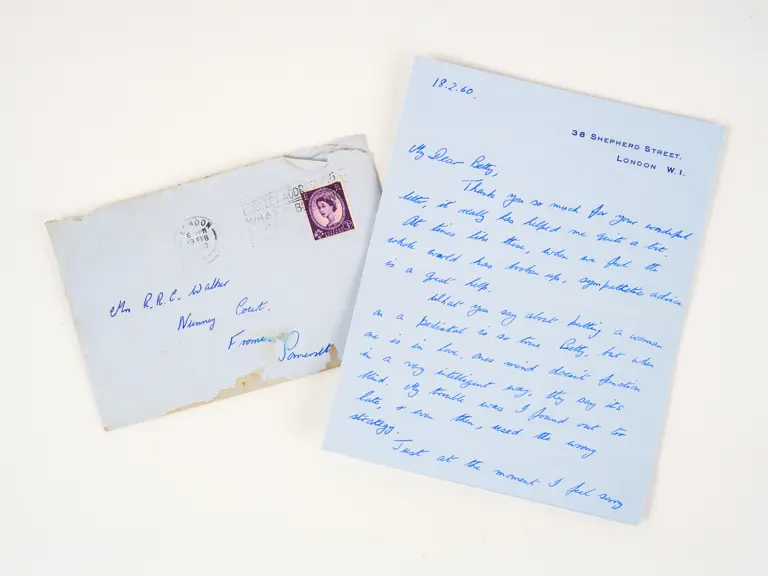 LONDON
6 - PM
19 FEB
WHAT
Mrs R.R.C. Walker
Nunney Court.
Frome
Somerset
18.2.60.
38 SHEPHERD STREET.
LONDON W.1.
My Dear Betty,
Thank you so much for your wonderful
letter, it really has helped me quite a lot.
At times like these, when we feel the
whole world has broken up, sympathetic advice
is a great help.
What you say about putting a woman
on a pedistal is so true Betty, but when
one is in love, ones mind doesn't function
in a very intelligent way, they say its
blind. My trouble was I found out too
late, & even then, used the wrong
strategy.
Just at the moment I feel sorry